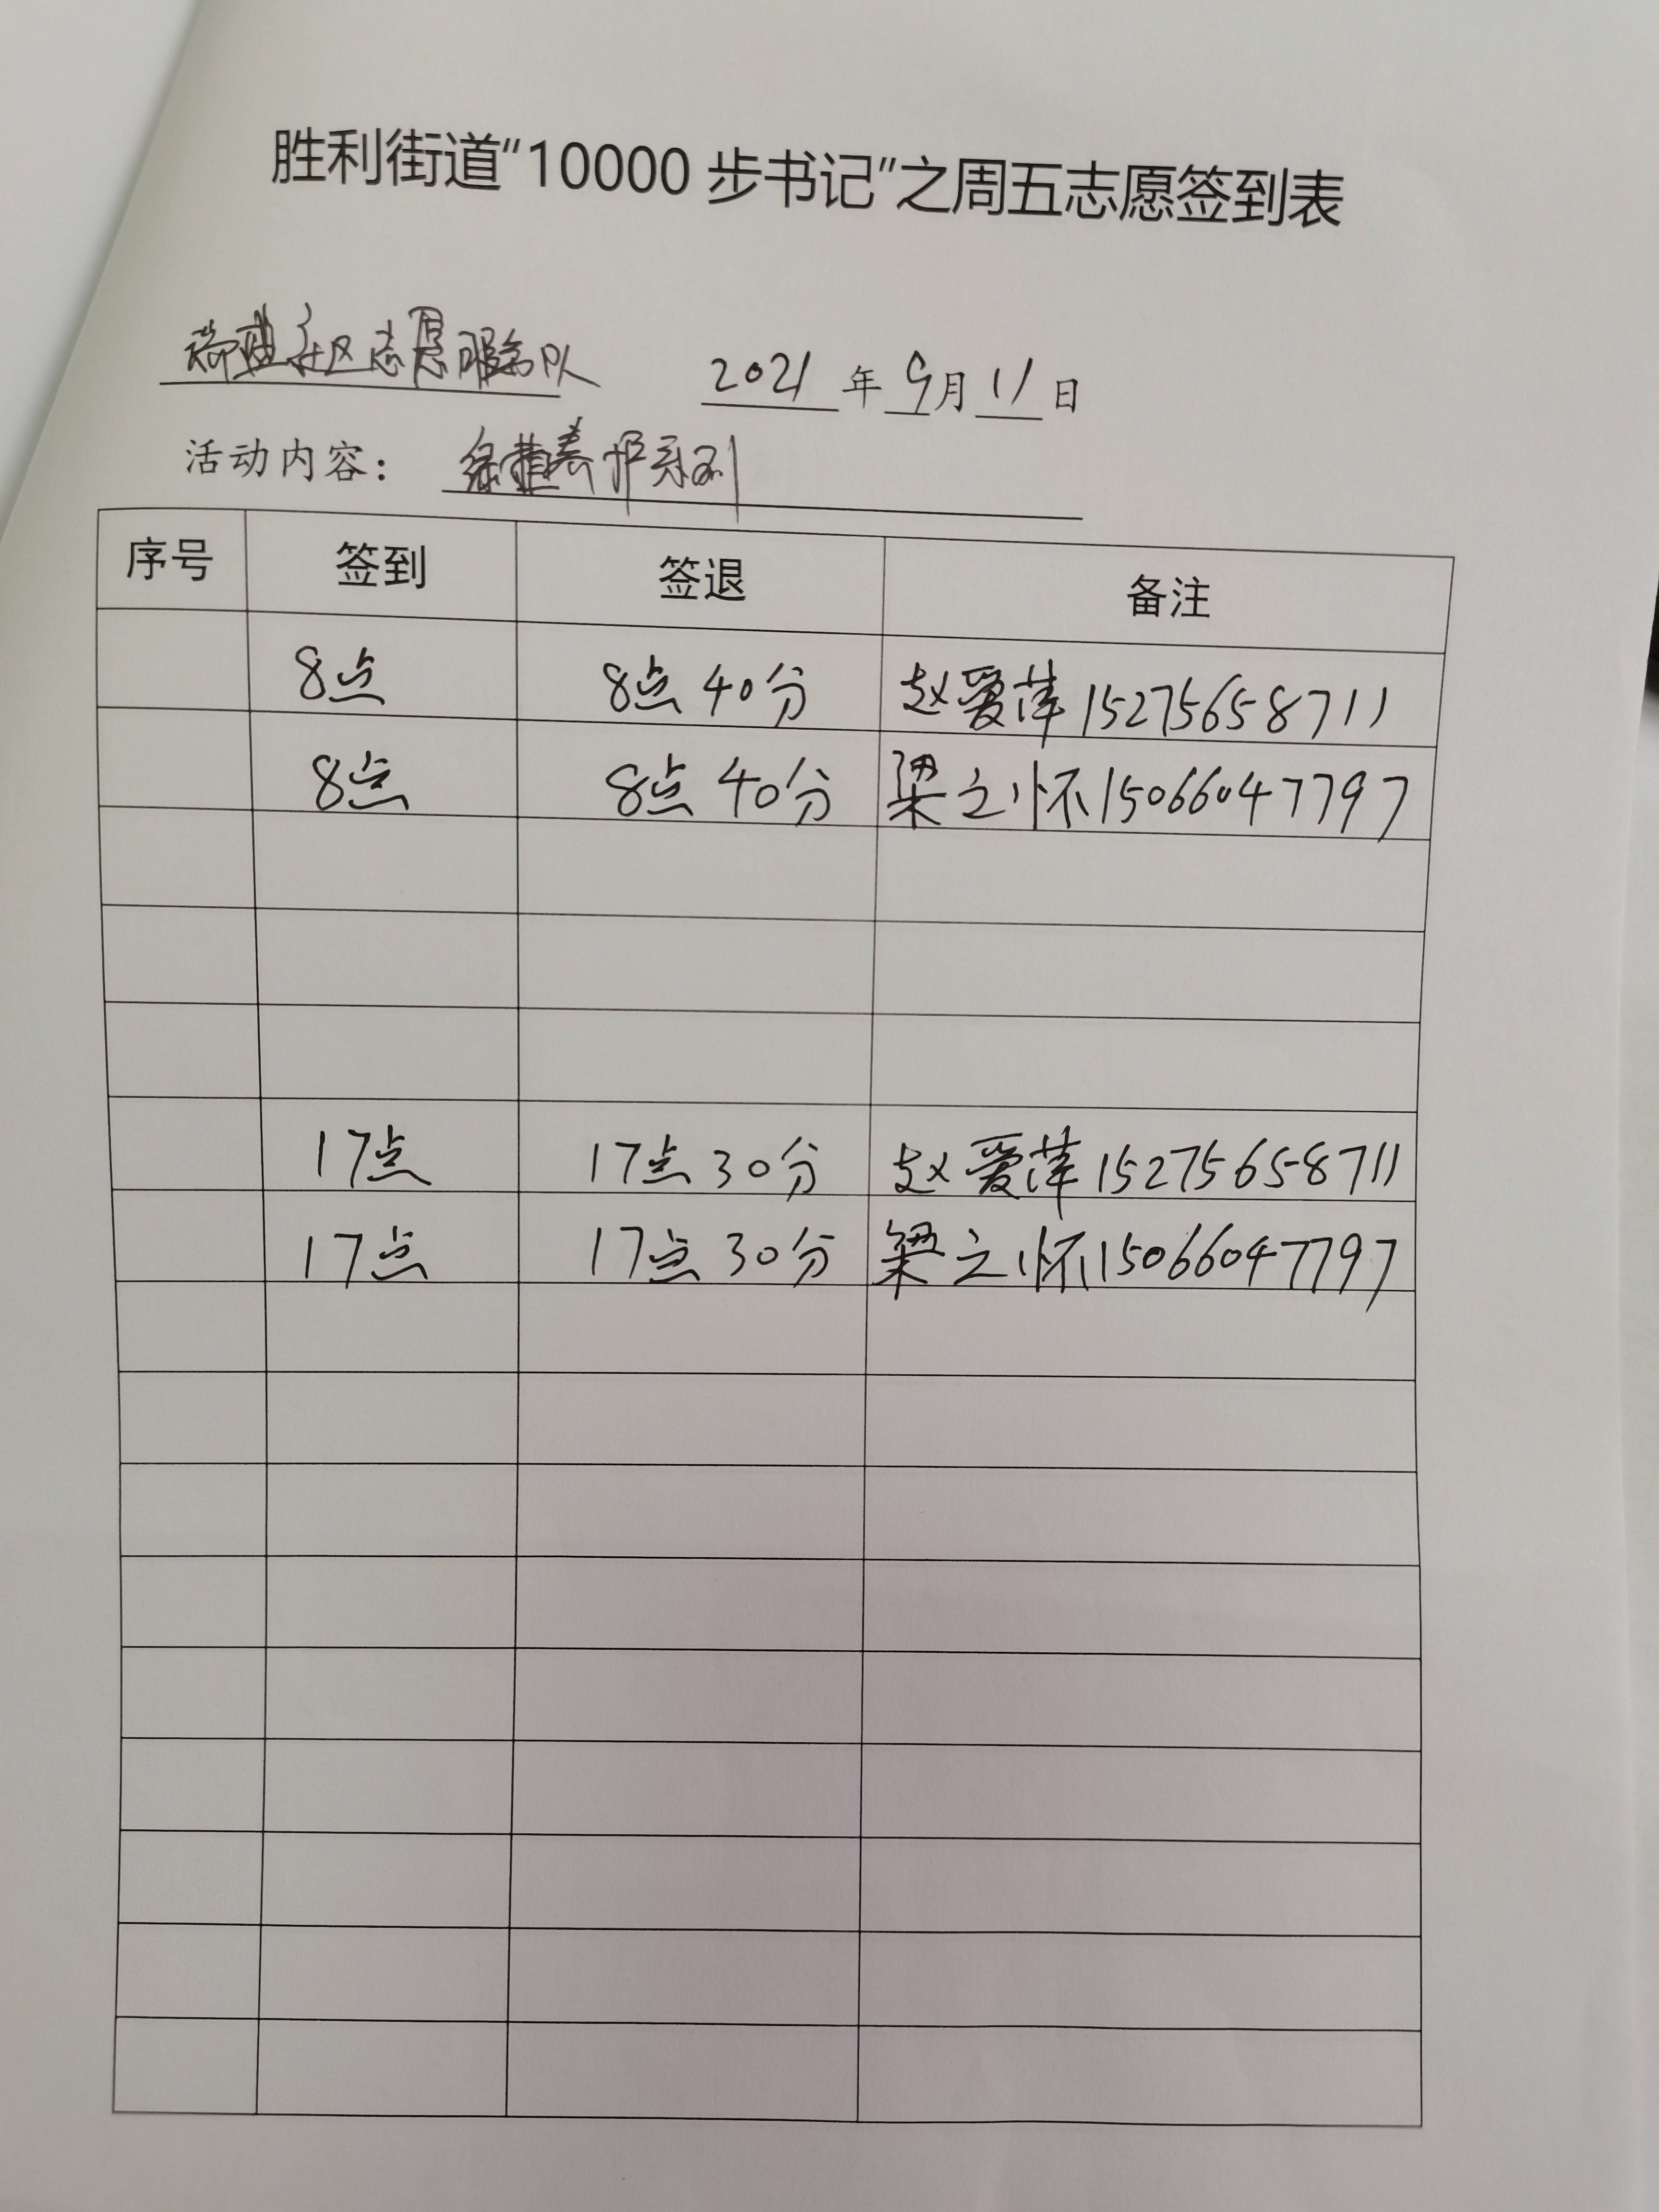 胜利街道“10000 步书记”之周五志愿签到表
社区志愿服务队 2021 年 9月 11 日
活动内容： 绿植养护系列
序号 签到 签退 备注
8点 8点40分 赵爱萍 15275658711
8点 8点40分 梁之怀 15066047797
17点 17点30分 赵爱萍 15275658711
17点 17点30分 梁之怀 15066047797